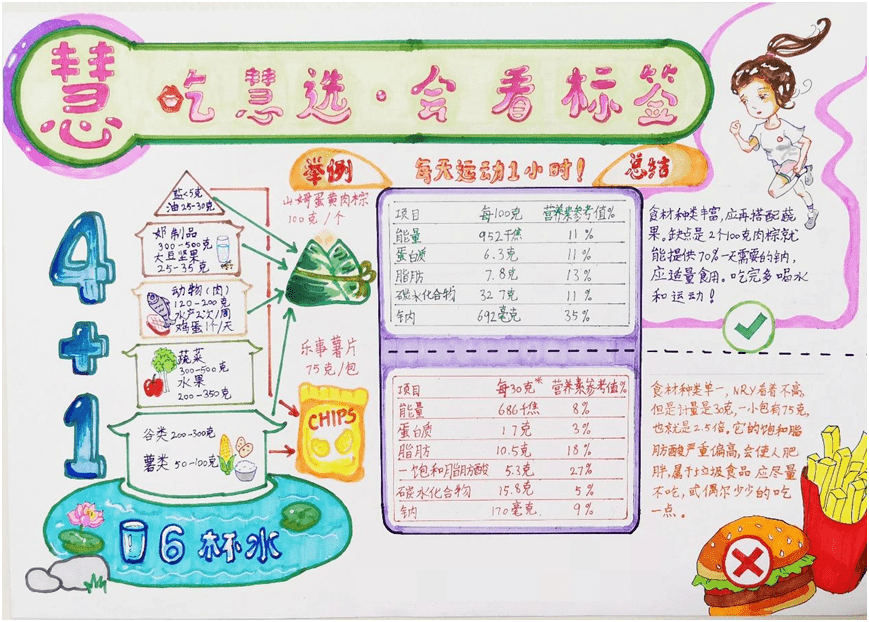 慧
吃慧选·会看标签
举例
每天运动1小时!
总结
4+1
盐<5克
油25-30克
奶制品
300-500克
大豆坚果
25-35克
动物(肉)
120-200克
水产2次/周
鸡蛋1个/天
蔬菜
300-500克
水果
200-350克
谷类 200-300克
薯类 50-100克
6杯水
山姆蛋黄肉粽
100克/个
乐事薯片
75克/包
CHIPS
项目 每100克 营养素参考值%
能量 952千焦 11%
蛋白质 6.3克 11%
脂肪 7.8克 13%
碳水化合物 32.7克 11%
钠 692毫克 35%
项目 每30克* 营养素参考值%
能量 686千焦 8%
蛋白质 1.7克 3%
脂肪 10.5克 18%
一饱和脂肪酸 5.3克 27%
碳水化合物 15.8克 5%
钠 170毫克 9%
食材种类丰富,应再搭配蔬
果。缺点是2个100克肉粽就
能提供70%一天需要的钠,
应适量食用。吃完多喝水
和运动!
食材种类单一,NRV看着不高,
但是计量是30克,一小包有75克,
也就是2.5倍。它的饱和脂
肪酸严重偏高,会使人肥
胖,属于垃圾食品,应尽量
不吃,或偶尔少少的吃
一点。